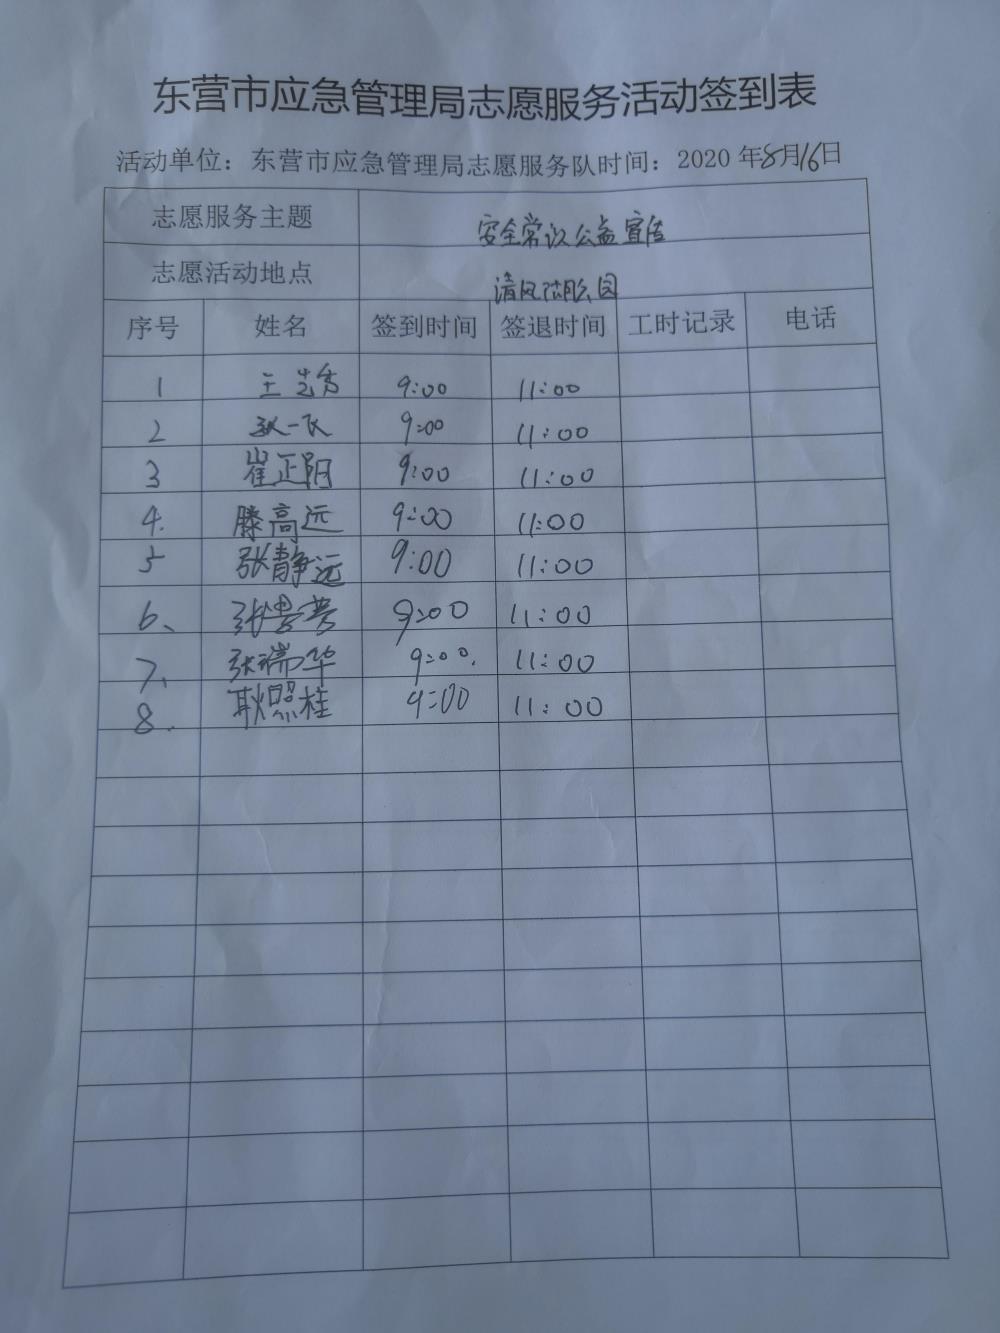 东营市应急管理局志愿服务活动签到表
活动单位：东营市应急管理局志愿服务队时间：2020 年8月16日
志愿服务主题 安全常识公益宣传
志愿活动地点 清风湖公园
序号 姓名 签到时间 签退时间 工时记录 电话
1 王艺秀 9:00 11:00
2 9:00 11:00
3 崔正阳 9:00 11:00
4. 滕高远 9:00 11:00
5 张静远 9:00 11:00
6、 9:00 11:00
7、 张瑞华 9:00. 11:00
8. 耿照桂 9:00 11:00